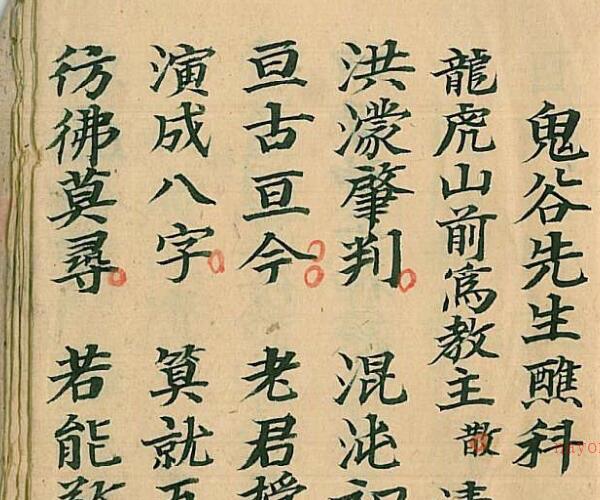 鬼谷先生醮科
龍虎山前爲教主 散
洪濛肇判 混沌初
亘古亘今 老君授
演成八字 算就五
彷彿莫尋 若能